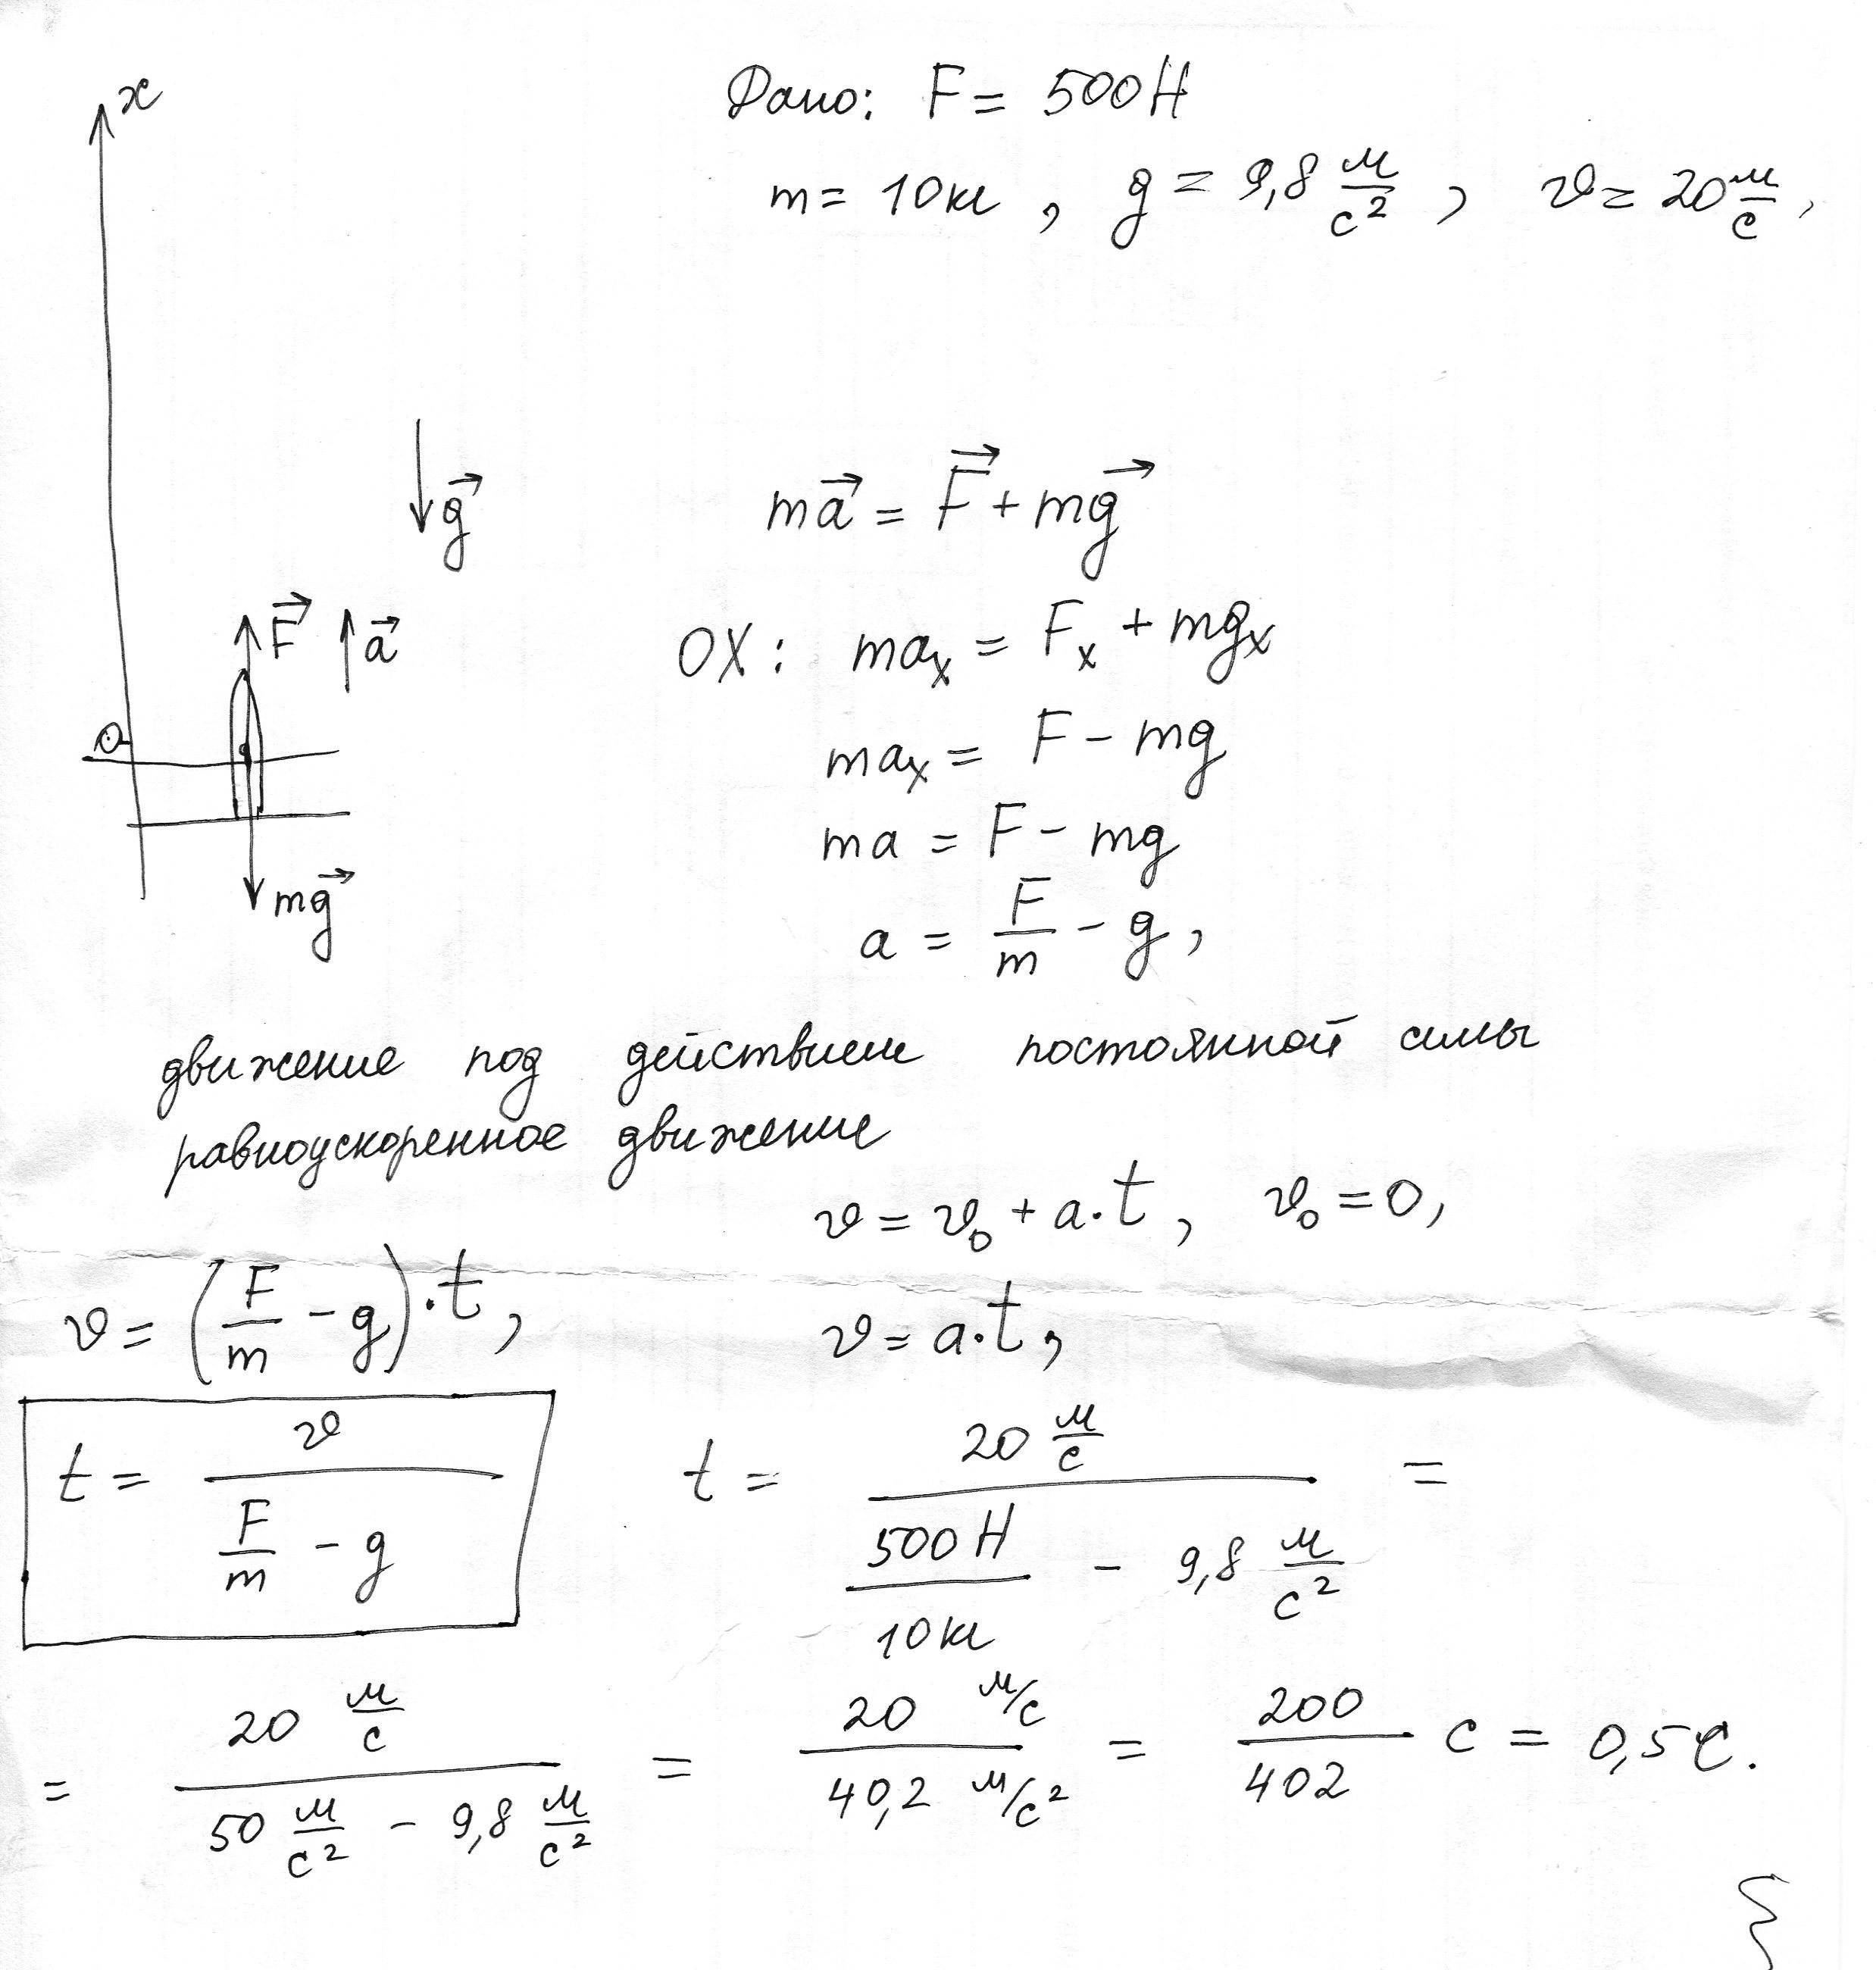 x
Дано: F = 500Н
m = 10кг , g = 9,8 м/с² , v = 20 м/с ,
g⃗
ma⃗ = F⃗ + mg⃗
F⃗ a⃗
OX: maₓ = Fₓ + mgₓ
O
maₓ = F - mg
ma = F - mg
mg⃗
a = F/m - g ,
движение под действием постоянной силы
равноускоренное движение
v = v₀ + a·t , v₀ = 0,
v = (F/m - g)·t ,
v = a·t ,
t = v/(F/m - g)
t = 20 м/с / (500Н/10кг - 9,8 м/с²) =
= 20 м/с / (50 м/с² - 9,8 м/с²) = 20 м/с / 40,2 м/с² = 200/402 с = 0,5с.